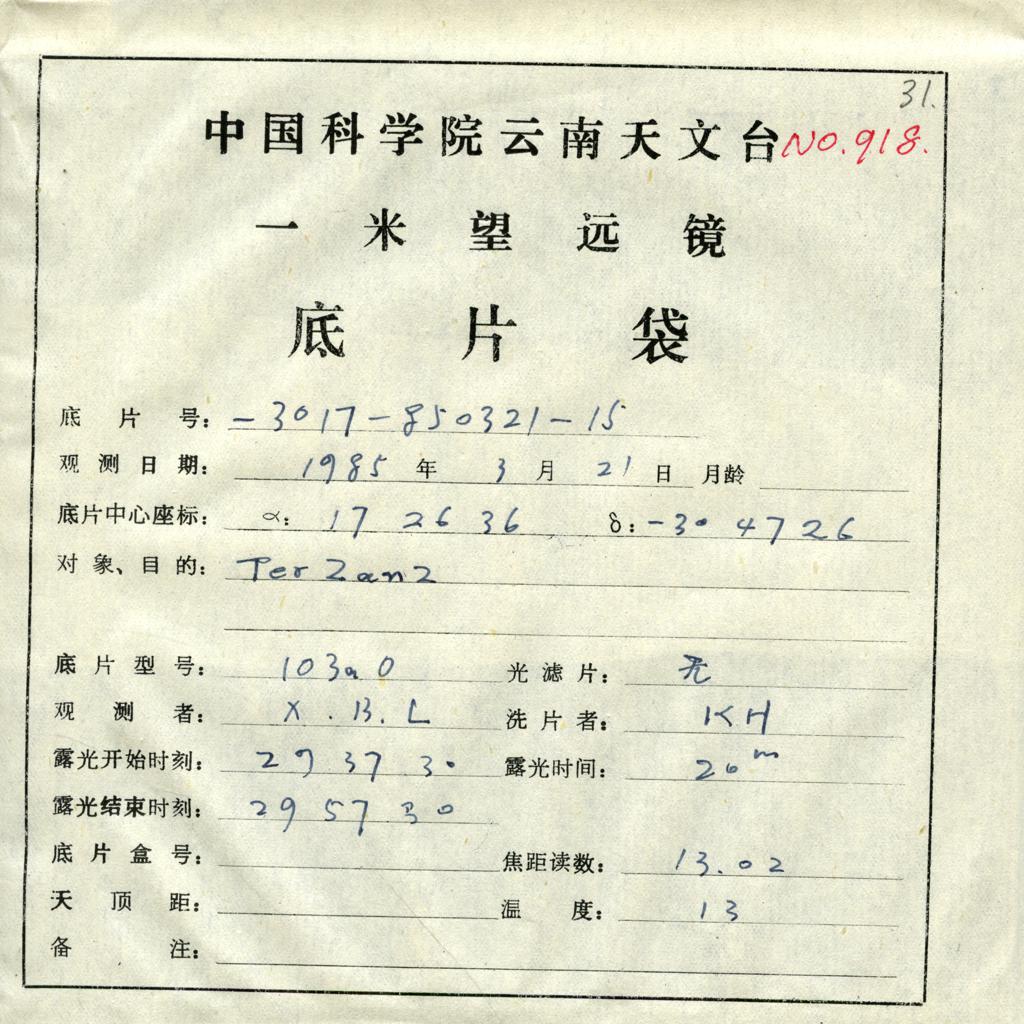 31.
中国科学院云南天文台 NO.918.
一米望远镜
底片袋
底片号: -3017-850321-15
观测日期: 1985 年 3 月 21 日 月龄
底片中心座标: α: 17 26 36 δ: -30 47 26
对象、目的: Ter Zan 2
底片型号: 103aO 光滤片: 无
观测者: X.B.L 洗片者: KH
露光开始时刻: 29 37 30 露光时间: 20m
露光结束时刻: 29 57 30
底片盒号: 焦距读数: 13.02
天顶距: 温度: 13
备注: